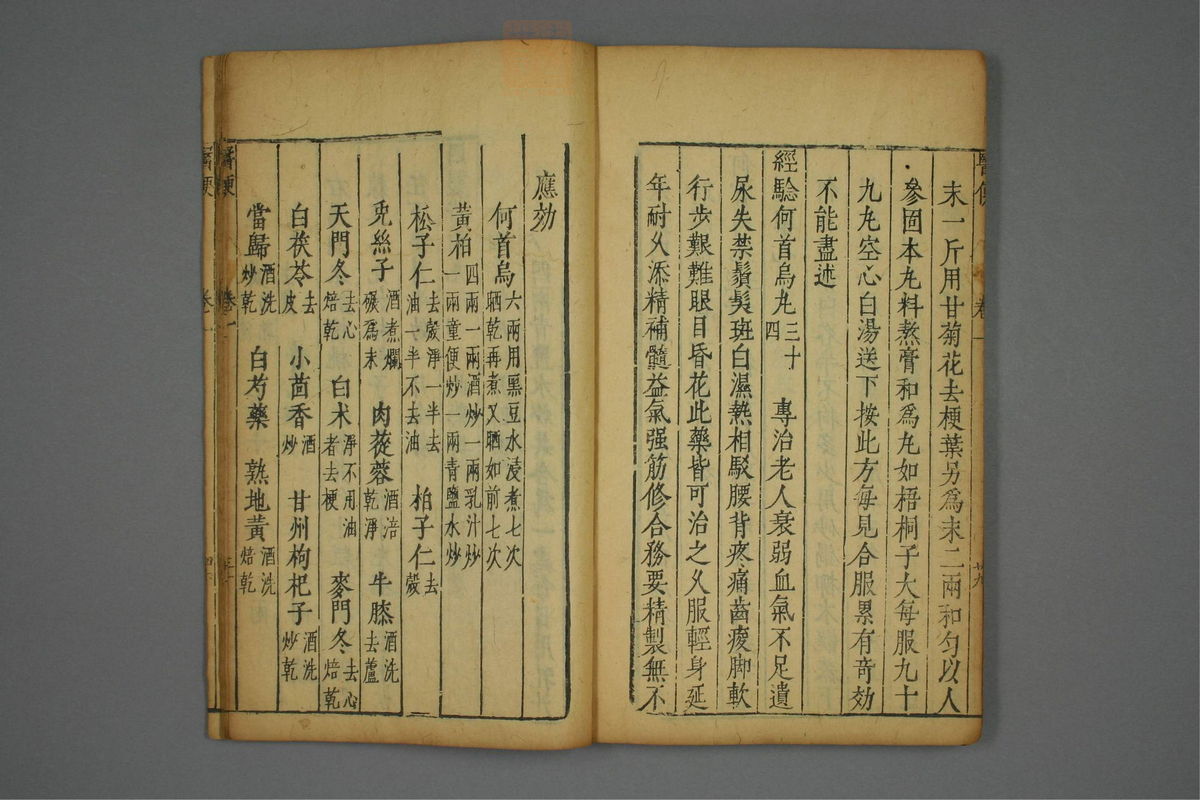 末一斤用甘菊花去梗葉另爲末二兩和勻以人
參固本丸料熬膏和爲丸如梧桐子大每服九十
九丸空心白湯送下按此方每見合服累有奇効
不能盡述
經驗何首烏丸三十四 專治老人衰弱血氣不足遺
尿失禁鬚髮斑白濕熱相駁腰背疼痛齒痠脚軟
行步艱難眼目昏花此藥皆可治之久服輕身延
年耐久添精補髓益氣强筋修合務要精製無不
應効
何首烏六兩用黑豆水浸煮七次晒乾再煮又晒如前七次
黃柏四兩一兩酒炒一兩乳汁炒一兩童便炒一兩青鹽水炒
松子仁去殼淨一半去油一半不去油 柏子仁去殼
兎絲子酒煮爛碾爲末 肉蓯蓉酒涪乾淨 牛膝酒洗去蘆
天門冬去心焙乾 白术淨不用油者去梗 麥門冬去心焙乾
白茯苓去皮 小茴香酒炒 甘州枸杞子酒洗炒乾
當歸酒洗炒乾 白芍藥 熟地黃酒洗焙乾
醫便 卷一